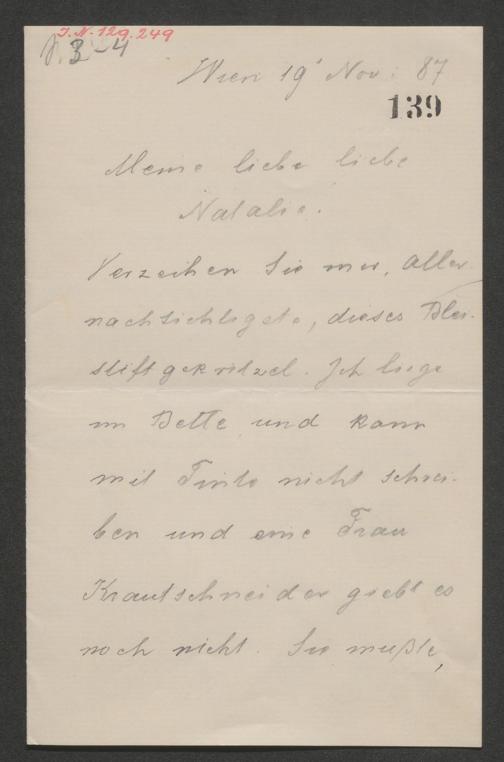 J.N. 129.249
3-4
Wien 19' Nov: 87
139
Meine liebe liebe
Natalie.
Verzeihen Sie mir, Aller
nachsichtigste, dieses Blei-
stiftgekritzel. Ich liege
im Bette und kann
mit Tinte nicht schrei-
ben und eine Frau
Krautschneider giebt es
noch nicht. Sie mußte,